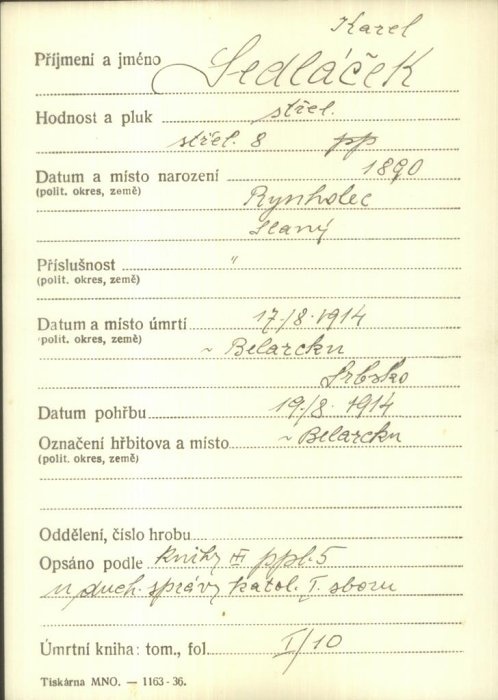 Karel
Příjmení a jméno Sedláček
Hodnost a pluk střel.
střel. 8 pp
Datum a místo narození 1890
(polit. okres, země) Rynholec
Slaný
Příslušnost "
(polit. okres, země)
Datum a místo úmrtí 17./8. 1914
(polit. okres, země) ~ Belarcku
Srbsko
Datum pohřbu 19./8. 1914
Označení hřbitova a místo ~ Belarcku
(polit. okres, země)
Oddělení, číslo hrobu
Opsáno podle knihy III ppl. 5
u duch. správy katol. I. sboru
Úmrtní kniha: tom., fol. I/10
Tiskárna MNO. — 1163-36.